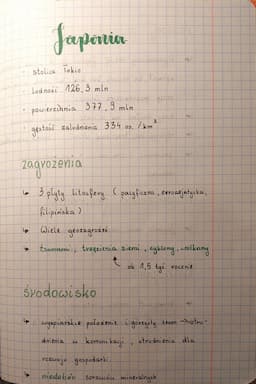 Japonia
- stolica Tokio
- ludność 126,3 mln
- powierzchnia 377,9 mln
gęstość zaludnienia 334 os. /km²
zagrożenia
↳ 3 płyty litosfery (pacyficzna, euroazjatycka,
filipińska)
↳ Wiele geozagrożeń
↳ tsunami, trzęsienia ziemi, cyklony, wulkany
ok 1,5 tyś rocznie
środowisko
↳ wyspiarskie położenie i górzysty teren → utru-
dnienia w komunikacji, utrudnienia dla
rozwoju gospodarki
↳ niedobór surowców mineralnych